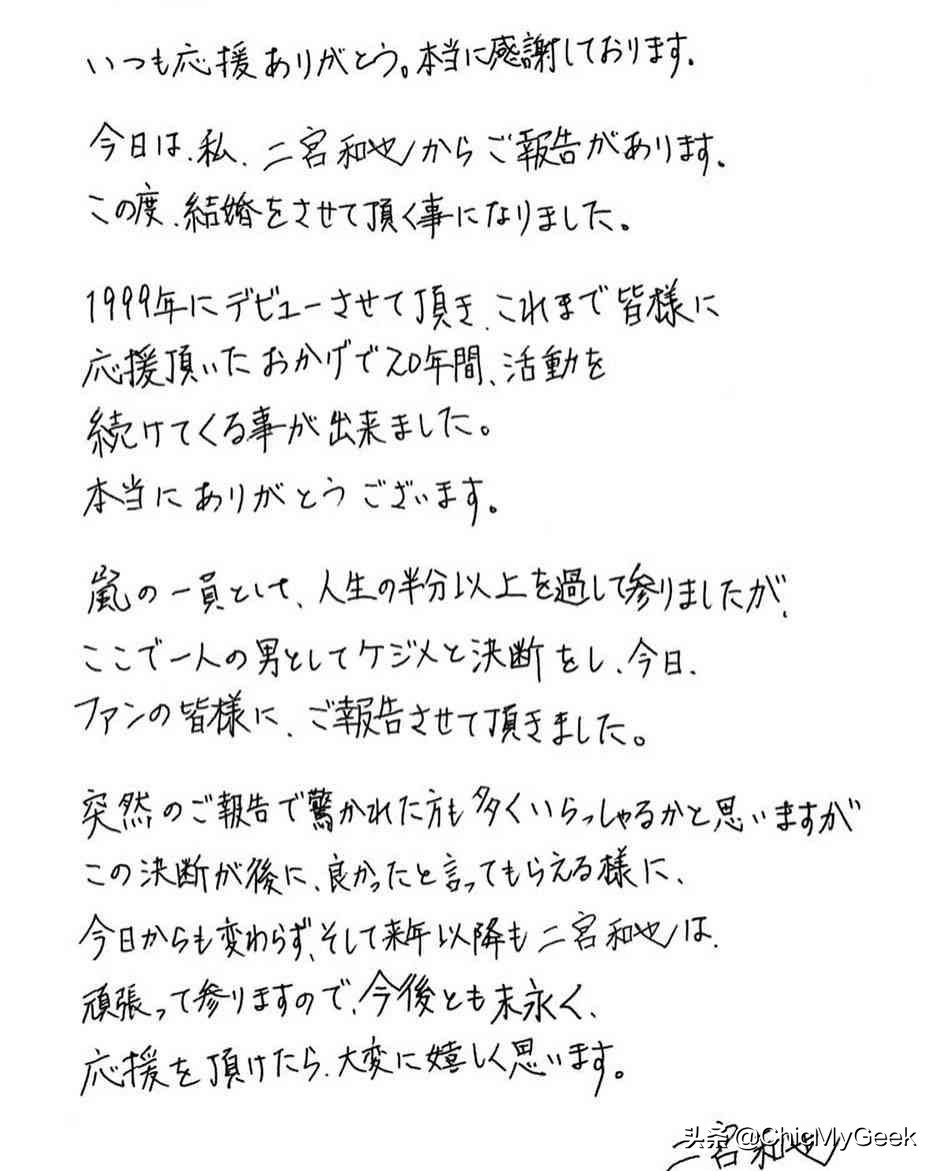 いつも応援ありがとう。本当に感謝しております。
今日は、私、二宮和也からご報告があります。
この度、結婚をさせて頂く事になりました。
1999年にデビューさせて頂き、これまで皆様に
応援頂いたおかげで20年間、活動を
続けてくる事が出来ました。
本当にありがとうございます。
嵐の一員として、人生の半分以上を過して参りましたが、
ここで一人の男としてケジメと決断をし、今日、
ファンの皆様に、ご報告させて頂きました。
突然のご報告で驚かれた方も多くいらっしゃるかと思いますが
この決断が後に、良かったと言ってもらえる様に、
今日からも変わらず、そして来年以降も二宮和也は、
頑張って参りますので、今後とも末永く、
応援を頂けたら、大変に嬉しく思います。
二宮和也
头条@ChicMyGeek